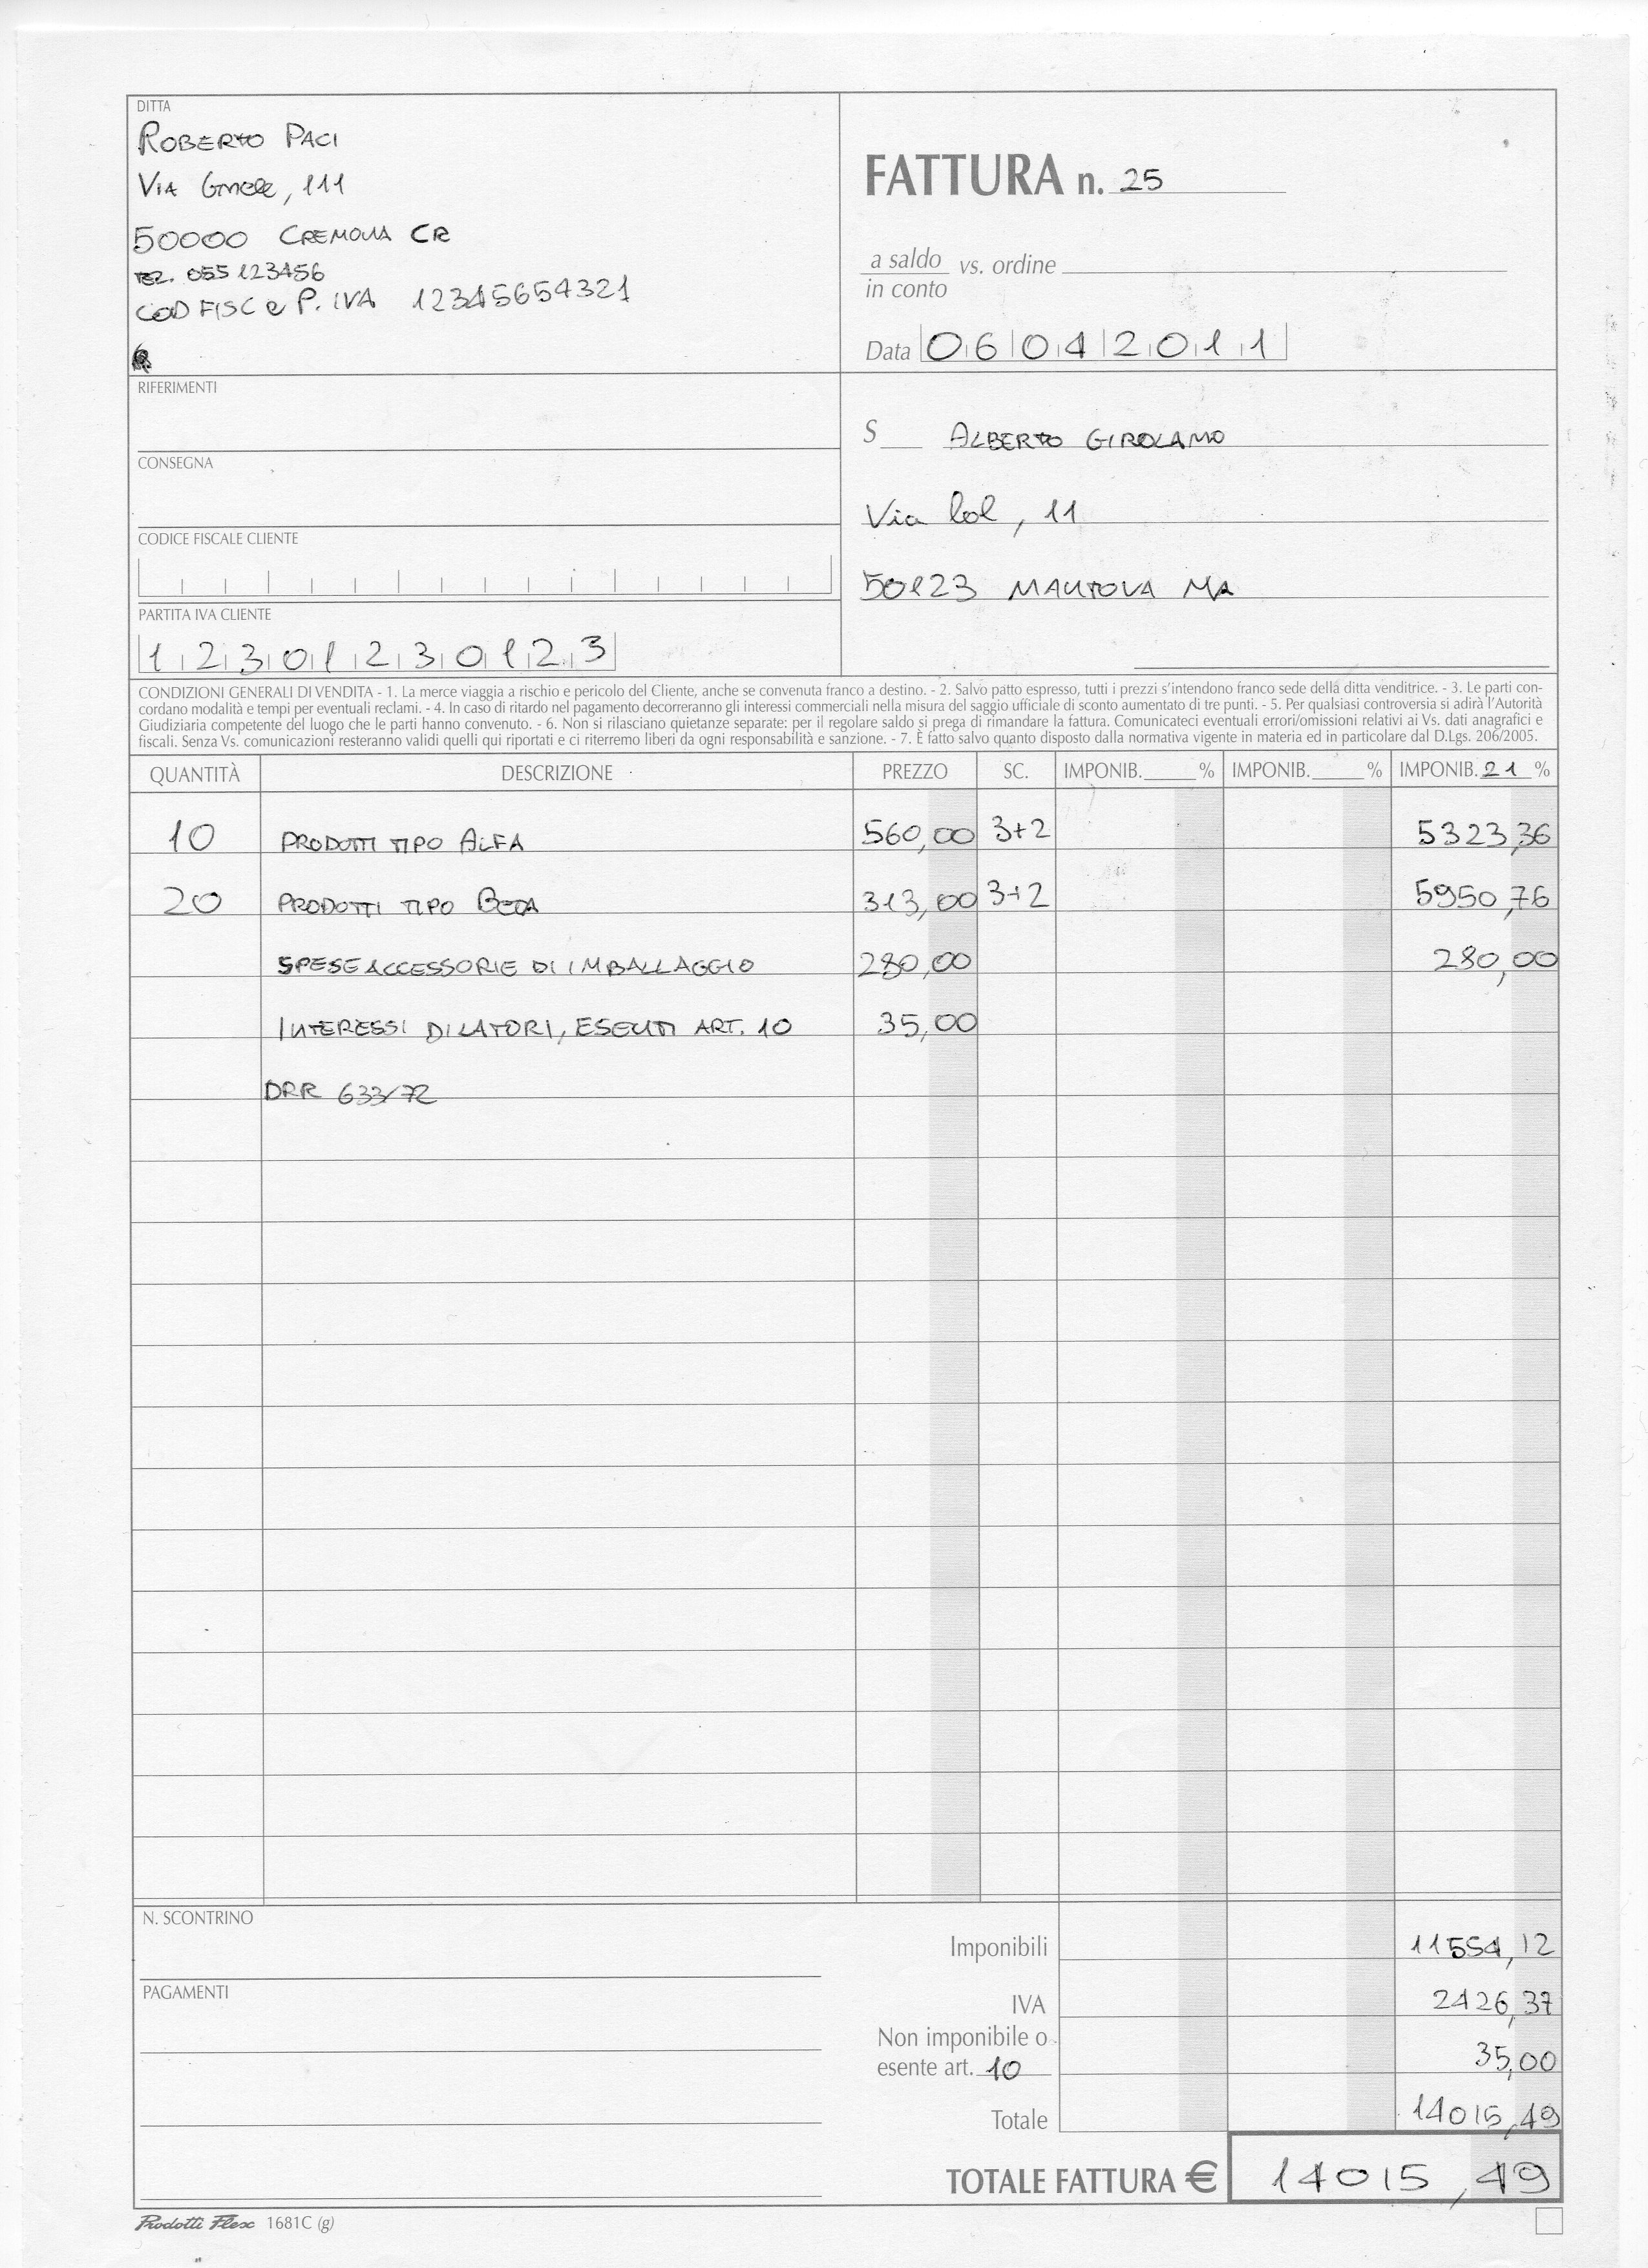 DITTA
ROBERTO PACI
VIA Gmele, 111
50000 CREMONA CR
TEL. 055 123456
COD FISC e P. IVA 12345654321
FATTURA n. 25
a saldo vs. ordine
in conto
Data 06042011
RIFERIMENTI
CONSEGNA
CODICE FISCALE CLIENTE
PARTITA IVA CLIENTE
12301230123
S ALBERTO GIROLAMO
Via lol, 11
50123 MANTOVA MA
CONDIZIONI GENERALI DI VENDITA - 1. La merce viaggia a rischio e pericolo del Cliente, anche se convenuta franco a destino. - 2. Salvo patto espresso, tutti i prezzi s'intendono franco sede della ditta venditrice. - 3. Le parti con-
cordano modalità e tempi per eventuali reclami. - 4. In caso di ritardo nel pagamento decorreranno gli interessi commerciali nella misura del saggio ufficiale di sconto aumentato di tre punti. - 5. Per qualsiasi controversia si adirà l'Autorità
Giudiziaria competente del luogo che le parti hanno convenuto. - 6. Non si rilasciano quietanze separate: per il regolare saldo si prega di rimandare la fattura. Comunicateci eventuali errori/omissioni relativi ai Vs. dati anagrafici e
fiscali. Senza Vs. comunicazioni resteranno validi quelli qui riportati e ci riterremo liberi da ogni responsabilità e sanzione. - 7. È fatto salvo quanto disposto dalla normativa vigente in materia ed in particolare dal D.Lgs. 206/2005.
QUANTITÀ DESCRIZIONE PREZZO SC. IMPONIB. % IMPONIB. % IMPONIB. 21 %
10 PRODOTTI TIPO ALFA 560,00 3+2 5323,36
20 PRODOTTI TIPO BETA 313,00 3+2 5950,76
SPESE ACCESSORIE DI IMBALLAGGIO 280,00 280,00
INTERESSI DILATORI, ESENTI ART. 10 35,00
DRR 633/72
N. SCONTRINO
PAGAMENTI
Imponibili 11554,12
IVA 2426,37
Non imponibile o
esente art. 10 35,00
Totale 14015,49
TOTALE FATTURA € 14015,49
Prodotti Flex 1681C (g)